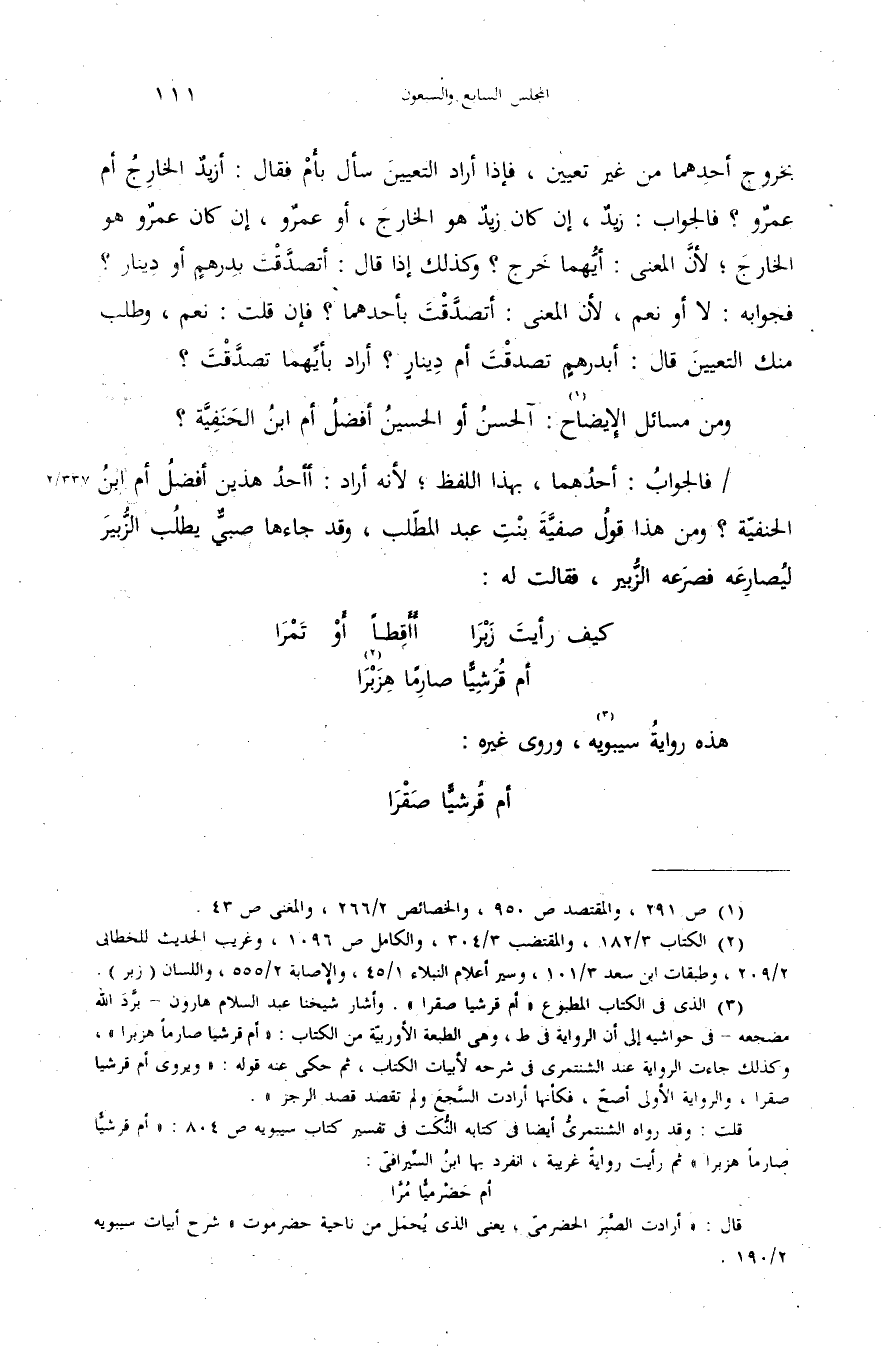 المجلس السابع والسبعون ١١١
بخروج أحدِهما من غير تعيين ، فإذا أراد التعيينَ سأل بأَمْ فقال : أزيدٌ الخارِجُ أم
عمرٌو ؟ فالجواب : زيدٌ ، إن كان زيدٌ هو الخارجَ ، أو عمرٌو ، إن كان عمرٌو هو
الخارجَ ؛ لأنَّ المعنى : أيُّهما خَرج ؟ وكذلك إذا قال : أتصدَّقْتَ بدِرهمٍ أو دِينار ؟
فجوابه : لا أو نعم ، لأن المعنى : أتصدَّقْتَ بأحدهما ؟ فإن قلت : نعم ، وطلب
منك التعيينَ قال : أبدرهمٍ تصدقْتَ أم دِينارٍ ؟ أراد بأيِّهما تصدَّقْتَ ؟
ومن مسائل الإيضاح(١) : آلحسنُ أو الحسينُ أفضلُ أم ابنُ الحَنَفِيَّة ؟
/ فالجوابُ : أحدُهما ، بهذا اللفظ ؛ لأنه أراد : أأحدُ هذين أفضلُ أم ابنُ ٢/٣٣٧
الحنفيّة ؟ ومن هذا قولُ صفيَّةَ بنْتِ عبد المطّلب ، وقد جاءها صبيٌّ يطلُب الزُّبيرَ
ليُصارِعَه فصرَعه الزُّبير ، فقالت له :
كيف رأيتَ زَبْرَا أَأَقِطاً أَوْ تَمْرَا
أم قُرَشِيًّا صارِمًا هِزَبْرَا(٢)
هذه روايةُ سيبويه(٣) ، وروى غيره :
أم قُرشيًّا صَقْرَا
(١) ص ٢٩١ ، والمقتصد ص ٩٥٠ ، والخصائص ٢٦٦/٢ ، والمغنى ص ٤٣ .
(٢) الكتاب ١٨٢/٣ ، والمقتضب ٣٠٤/٣ ، والكامل ص ١٠٩٦ ، وغريب الحديث للخطابى
٢٠٩/٢ ، وطبقات ابن سعد ١٠١/٣ ، وسير أعلام النبلاء ٤٥/١ ، والإصابة ٥٥٥/٢ ، واللسان ( زبر ) .
(٣) الذى فى الكتاب المطبوع « أم قرشيا صقرا » . وأشار شيخنا عبد السلام هارون – برَّدَ الله
مضجعه – فى حواشيه إلى أن الرواية فى ط ، وهى الطبعة الأوربيّة من الكتاب : « أم قرشيا صارماً هزبرا » ،
وكذلك جاءت الرواية عند الشنتمرى فى شرحه لأبيات الكتاب ، ثم حكى عنه قوله : « ويروى أم قرشيا
صقرا ، والرواية الأولى أصحّ ، فكأنها أرادت السَّجعَ ولم تقصد قصد الرجز » .
قلت : وقد رواه الشنتمرىُّ أيضا فى كتابه النُّكَت فى تفسير كتاب سيبويه ص ٨٠٤ : « أم قرشيًّا
صارماً هزبرا » ثم رأيت روايةً غريبة ، انفرد بها ابنُ السِّيرافىّ :
أم حَضْرميًّا مُرَّا
قال : « أرادت الصَّبِرَ الحضرمىّ ، يعنى الذى يُحمَل من ناحية حضرموت » شرح أبيات سيبويه
١٩٠/٢ .